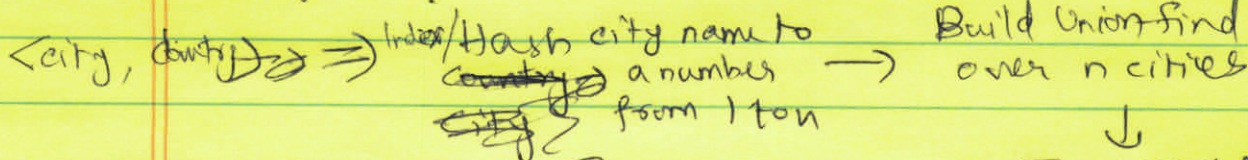 <city, Country> => Index/Hash city name to
a number
from 1 to n
→ Build Union find
over n cities
↓